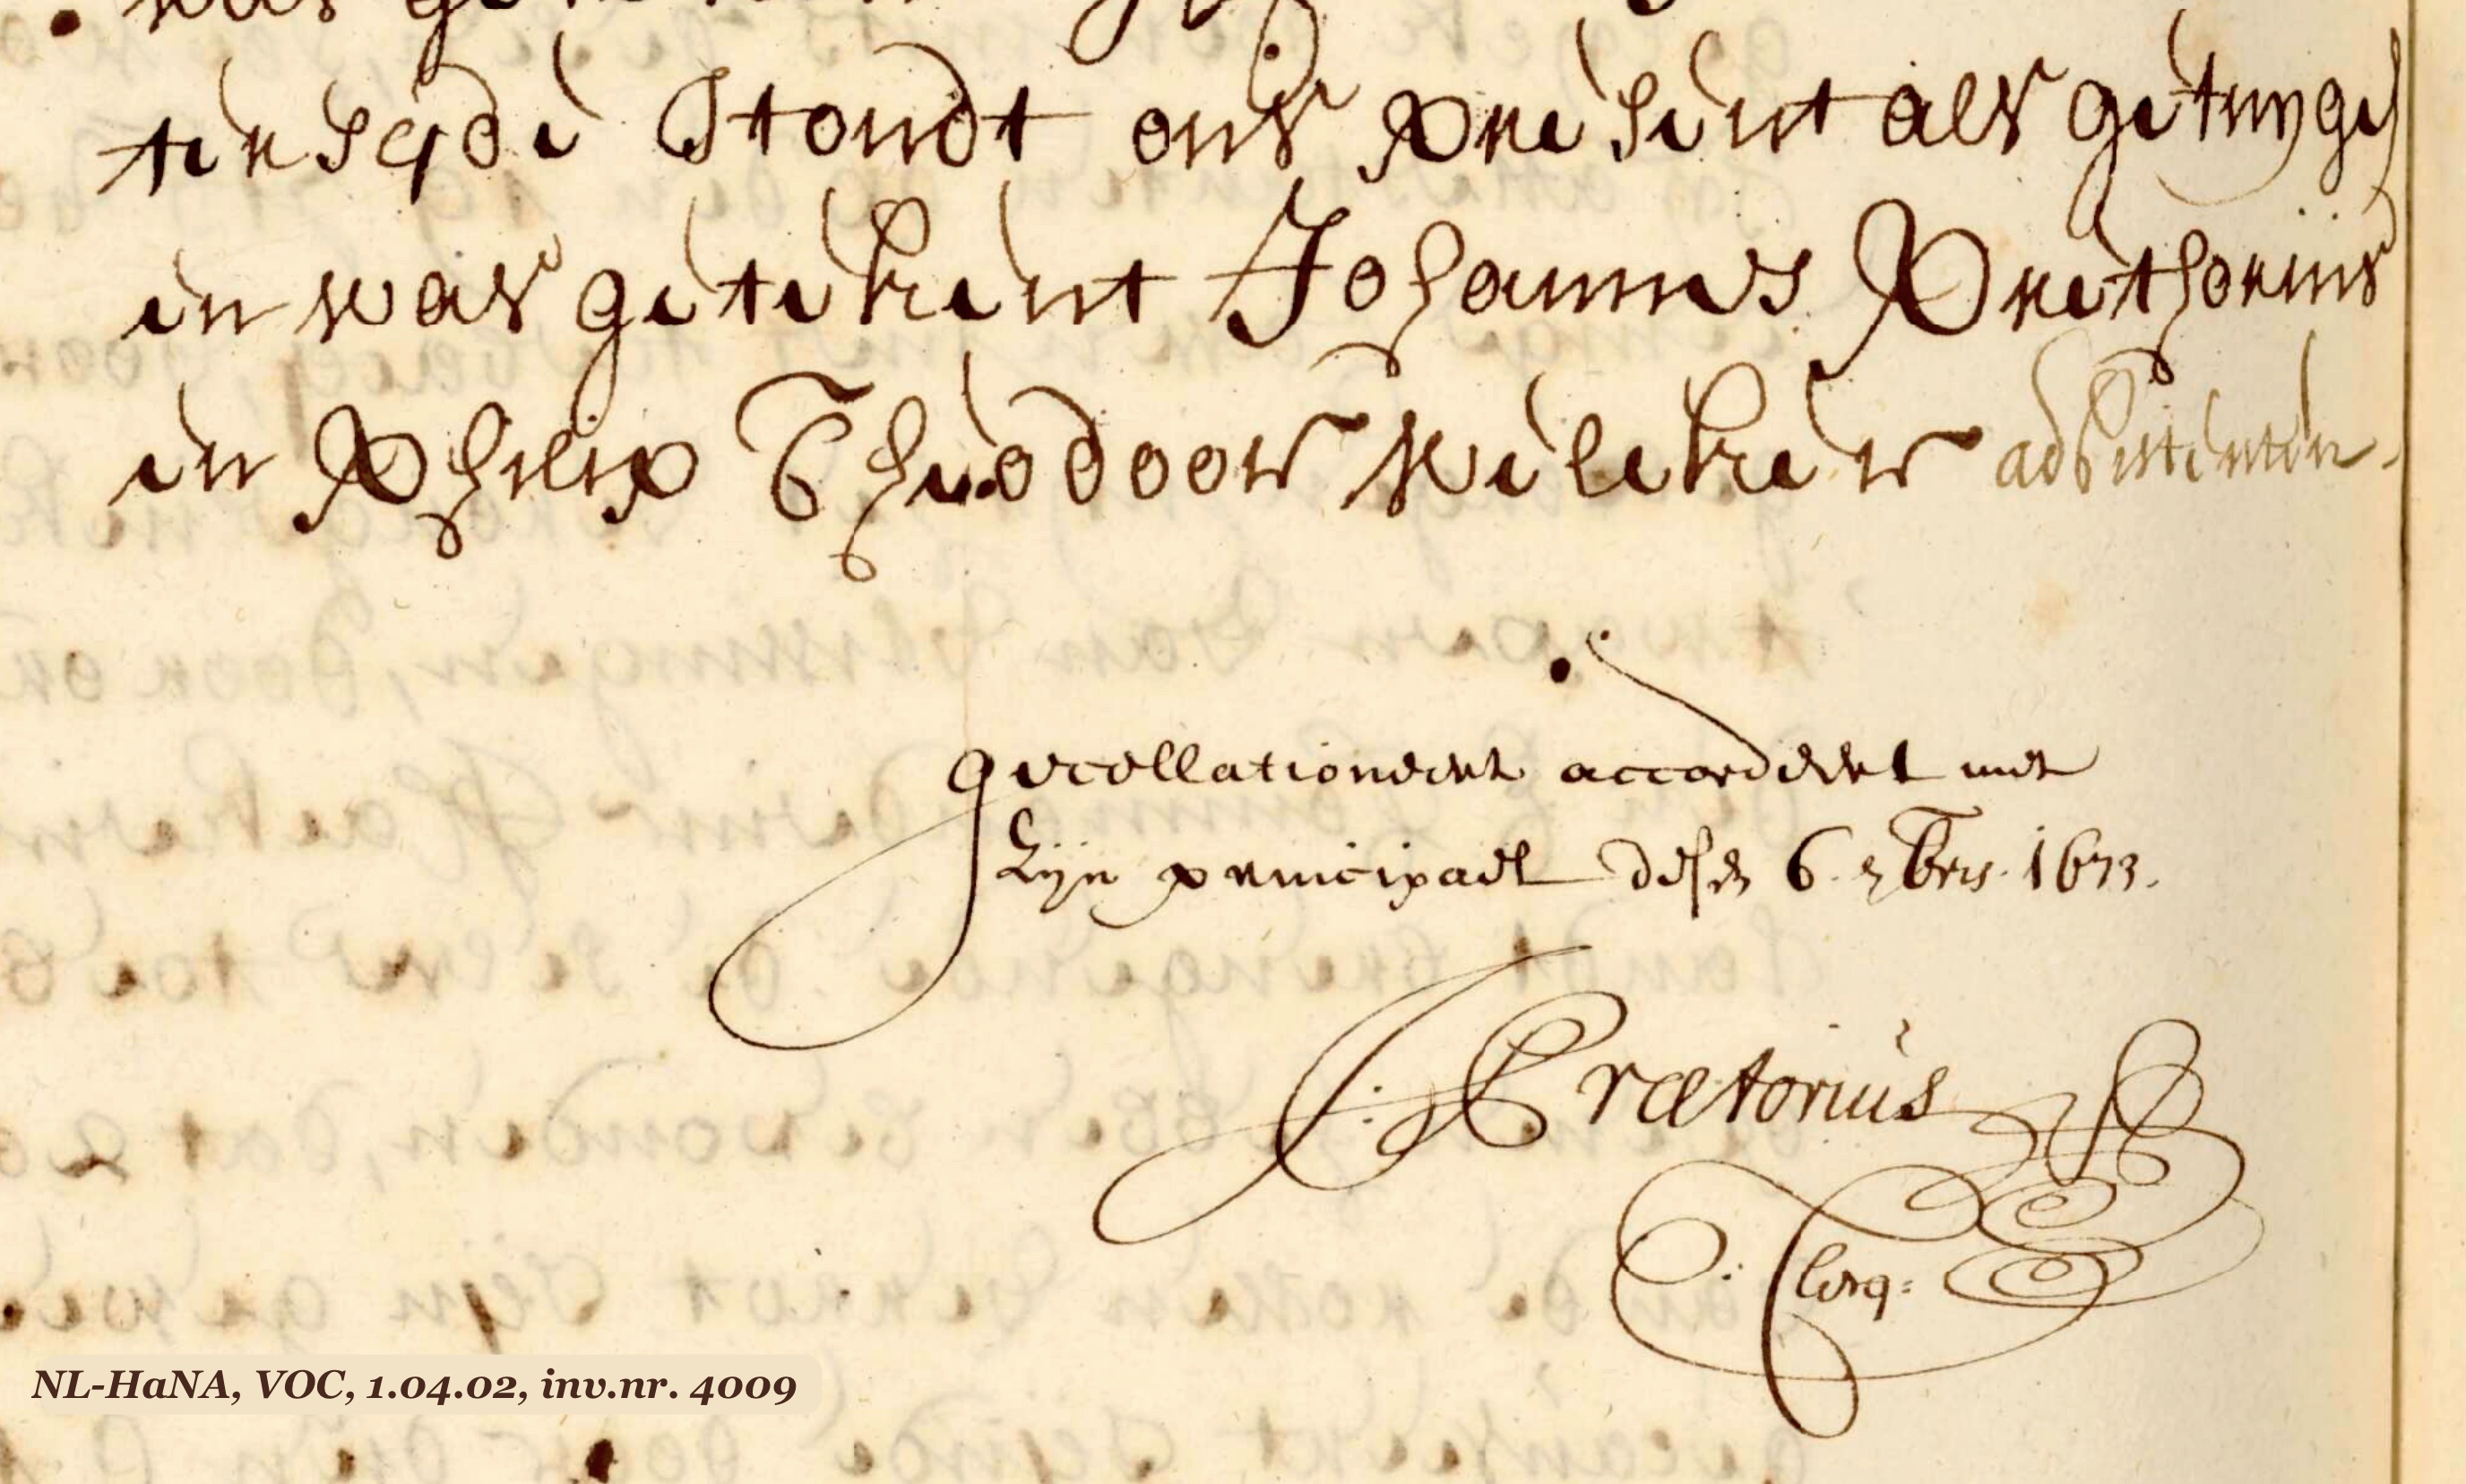 ter seijde stondt ons present als getuijgen
en was geteekent Johannes Prethorius
en Philip Theodoor Welcker adsistenten.
Gecollationeert accordeert met
Zijn principael desen 6. 7bris. 1673.
J: Prætorius
: Clercq:
NL-HaNA, VOC, 1.04.02, inv.nr. 4009